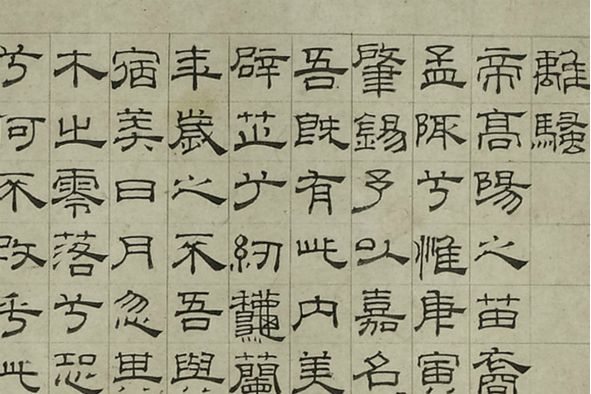 離騷
帝髙陽之苗裔
孟陬兮惟庚寅
肇錫予以嘉名
吾既有此內美
辟芷兮紉龝蘭
年歲之不吾與
宿莽日月忽其
木之零落兮恐
兮何不改乎此